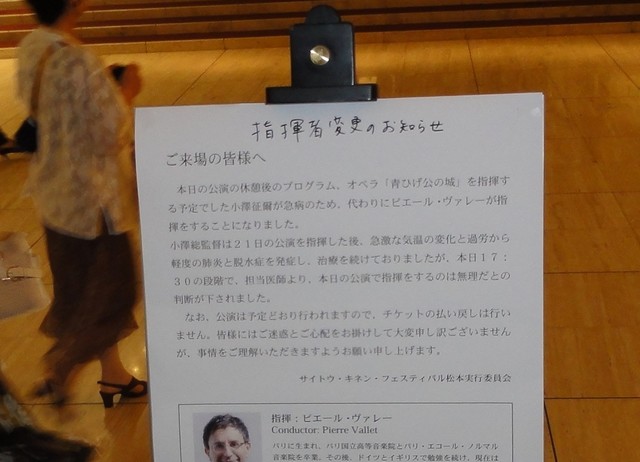 指揮者変更のお知らせ
ご来場の皆様へ
本日の公演の休憩後のプログラム、オペラ「青ひげ公の城」を指揮す
る予定でした小澤征爾が急病のため、代わりにピエール・ヴァレーが指
揮をすることになりました。
小澤総監督は21日の公演を指揮した後、急激な気温の変化と過労から
軽度の肺炎と脱水症を発症し、治療を続けておりましたが、本日17：
30の段階で、担当医師より、本日の公演で指揮をするのは無理だとの
判断が下されました。
なお、公演は予定どおり行われますので、チケットの払い戻しは行い
ません。皆様にはご迷惑とご心配をお掛けして大変申し訳ございません
が、事情をご理解いただきますようお願い申し上げます。
サイトウ・キネン・フェスティバル松本実行委員会
指揮：ピエール・ヴァレー
Conductor: Pierre Vallet
パリに生まれ、パリ国立高等音楽院とパリ・エコール・ノルマル
音楽院を卒業。その後、ドイツとイギリスで勉強を続け、現在は